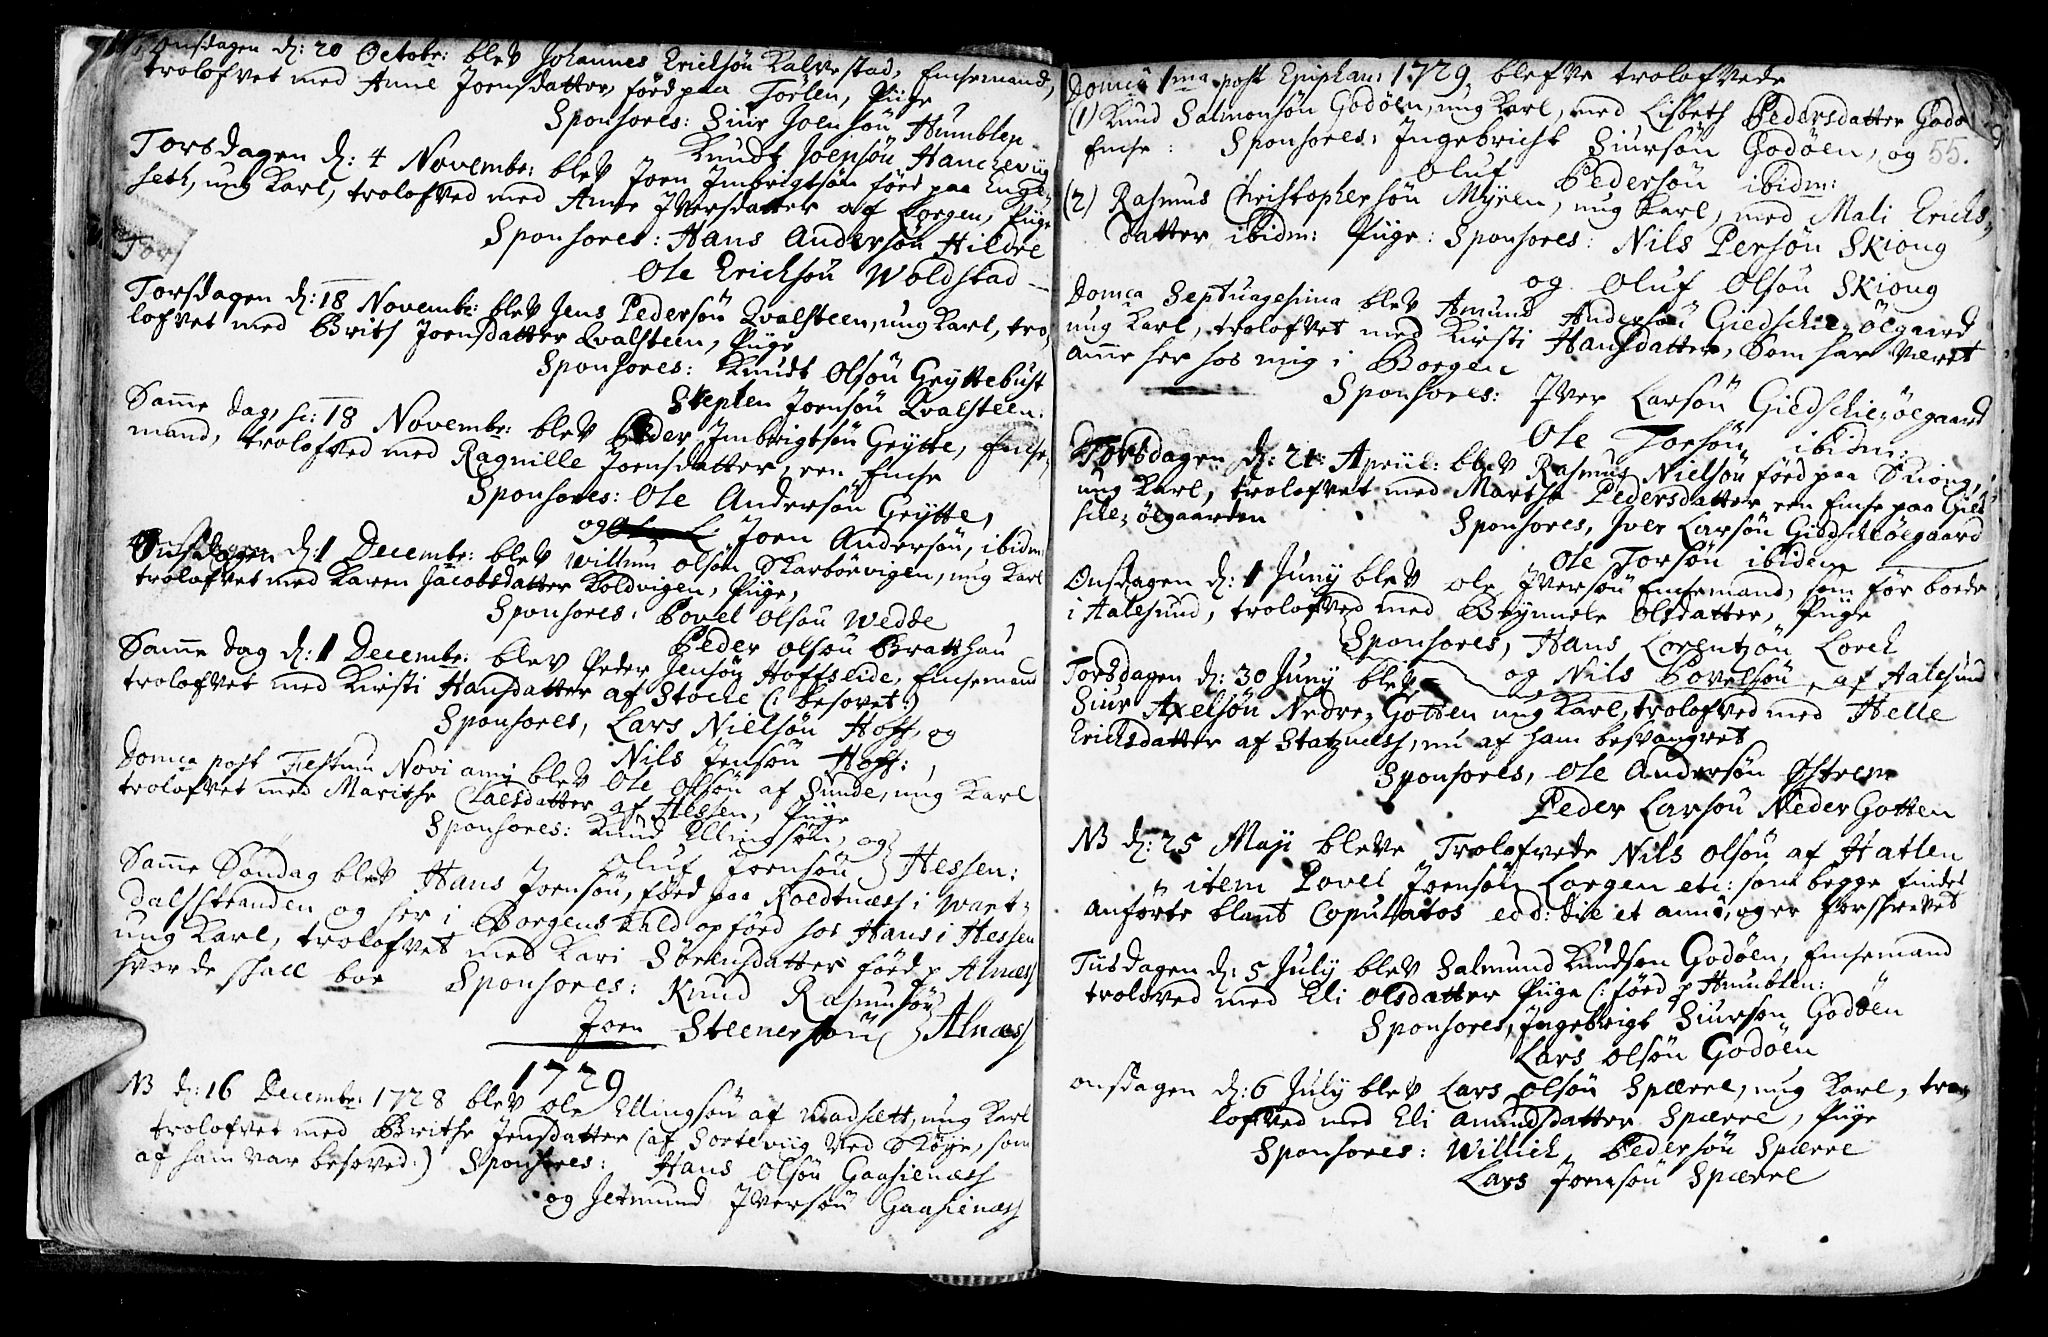 Onsdagen d: 20 Octobr: blev Johannes Ericksøn Kalvestad, Enkemand,
trolofvet med Anne Joensdatter, fød paa Torlen, Pige
Sponsores: Siur Joensøn Humblen
Knudt Joensøn Hanchevig
Torsdagen d: 4 Novembr: blev Joen Imbrigtsøn fød paa Enge
seth, ung Karl, trolofved med Anne Iversdatter af Borgen, Pige
Sponsores: Hans Andersøn Hildre
Tor
Ole Ericksøn Woldstad
Torsdagen d: 18 Novembr: blev Jens Pedersøn Qvalsteen, ung Karl, tro,
lofvet med Brith Joensdatter Qvalsteen, Pige
Sponsores: Knudt Olsøn Gryttebust
Stephen Joensøn Qvalsteen:
Samme dag, sc: 18 Novembr: blev Peder Imbrigtsøn Grytte, Enke,
mand, trolofved med Ragnille Joensdatter, een Enke
Sponsores: Ole Andersøn Grytte,
og Joen Andersøn, ibidm
Onsdagen d: 1 Decembr: blev Willum Olsøn Skarboevigen, ung Karl
trolofvet med Karen Jacobsdatter Koldvigen, Pige,
Sponsores: Povel Olsøn Wedde
Peder Olsøn Bratthau
Samme dag d: 1 Decembr: blev Peder Jensøn Hoffseide, Enkemand
trolofvet med Kirsti Hansdatter af Stocke (: besovet:)
Sponsores, Lars Nielsøn Hoff, og
Nils Jensøn Hoff:
Domca post Festum Novi anni blev Ole Olsøn af Sunde, ung Karl
trolofvet med Marithe Claesdatter af Hessen, Pige
Sponsores: Knud Ellingsøn, og
Oluf Joensøn } Hessen:
Samme Søndag blev Hans Joensøn, fød paa Roedtness i Wart,
dalsstranden og her i Borgens Kald opfød hos Hans i Hessen
ung Karl, trolofvet med Kari Sørensdatter fød p Alness
hvor de skall boe Sponsores: Knud Rasmusøn
Joen Steenersøn } Alness
1729
NB d: 16 Decembr: 1728 blev Ole Ellingsøn af Madsett, ung Karl
trolofvet med Brithe Jensdatter (af Sortevig ved Skoye, som
af ham var besoved:) Sponsores: Hans Olsøn Gaasieness
og Jetmund Iversøn Gaasieness
Domca 1ma post Epiphan: 1729 blefve trolofvede
(1) Knud Salmonsøn Godøen, ung Karl, med Lisbeth Pedersdatter Godø
Enke: Sponsores, Ingebricht Siursøn Godøen, og 55.
Oluf Pedersøn ibidm:
(2) Rasmus Christophersøn Myren, ung Karl, med Mali Ericks,
datter ibidm: Pige: Sponsores: Nils Persøn Skiong
og Oluf Olsøn Skiong
Domca Septuagesima blev Amund Andersøn Giedschie, Øegaard
ung Karl, trolofvet med Kirsti Hansdatter, som har været
amme her hos mig i Borgen
Sponsores: Iver Larsøn Giedschie, øegaard
Ole Torsøn ibidm:
Torsdagen d: 21: Apriil: blev Rasmus Nielsøn fød paa Skiong,
ung Karl, trolofvet med Marthe Pedersdatter, een Enke paa Gied
schie, øegaarden Sponsores, Iver Larsøn Giedschieøegaard
Ole Torsøn ibidem
Onsdagen d: 1 Juny blev Ole Iversøn Enkemand, som før boede
i Aalesund, trolofved med Brynnele Olsdatter, Pige
Sponsores, Hans Lorentzøn Lorck
og Nils Povelsøn, af Aalesund
Torsdagen d: 30 Juny blev
Siur Axelsøn Nedre, Gotten ung Karl, trolofved med Helle
Ericksdatter af Statzness, nu af ham besvangret
Sponsores, Ole Andersøn Østrem
Peder Larsøn Neder Gotten
NB d: 25 Maji bleve Trolofvede Nils Olsøn af Hatlen
item Povel Joensøn Lorgen etc: som begge findes
anførte blant Copulatos eod: die et anno, og er forskrevet
Tiisdagen d: 5 July blev Salmund Knudsøn Godøen, Enkemand
troloved med Eli Olsdatter Pige (: fød p Humblen:
Sponsores, Ingebrigt Siursøn Godøen
Lars Olsøn Godøen
onsdagen d: 6 July blev Lars Olsøn Spærre, ung Karl, tro,
lofved med Eli Amundsdatter Spærre, Pige
Sponsores: Willich Pedersøn Spærre
Lars Joensøn Spærre